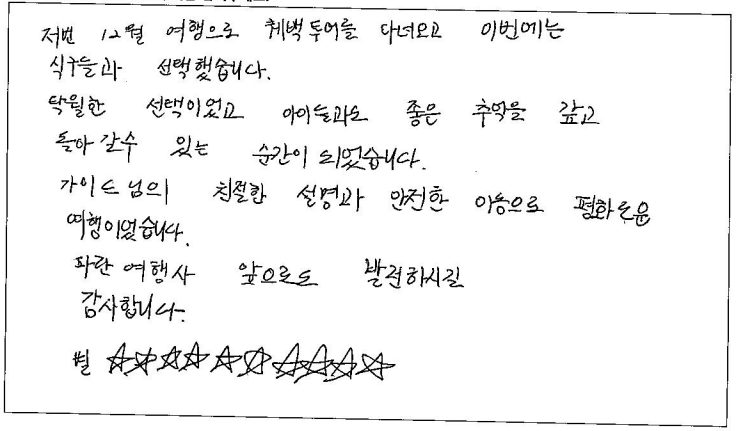 저번 12월 여행으로 췌백투어를 다녀오고 이번에는
식구들과 선택했습니다.
탁월한 선택이었고 아이들과도 좋은 추억을 갖고
돌아갈수 있는 순간이 되었습니다.
가이드님의 친절한 설명과 안전한 이동으로 평화로운
여행이었습니다.
파란여행사 앞으로도 발전하시길
감사합니다.
별 ☆☆☆☆☆☆☆☆☆☆